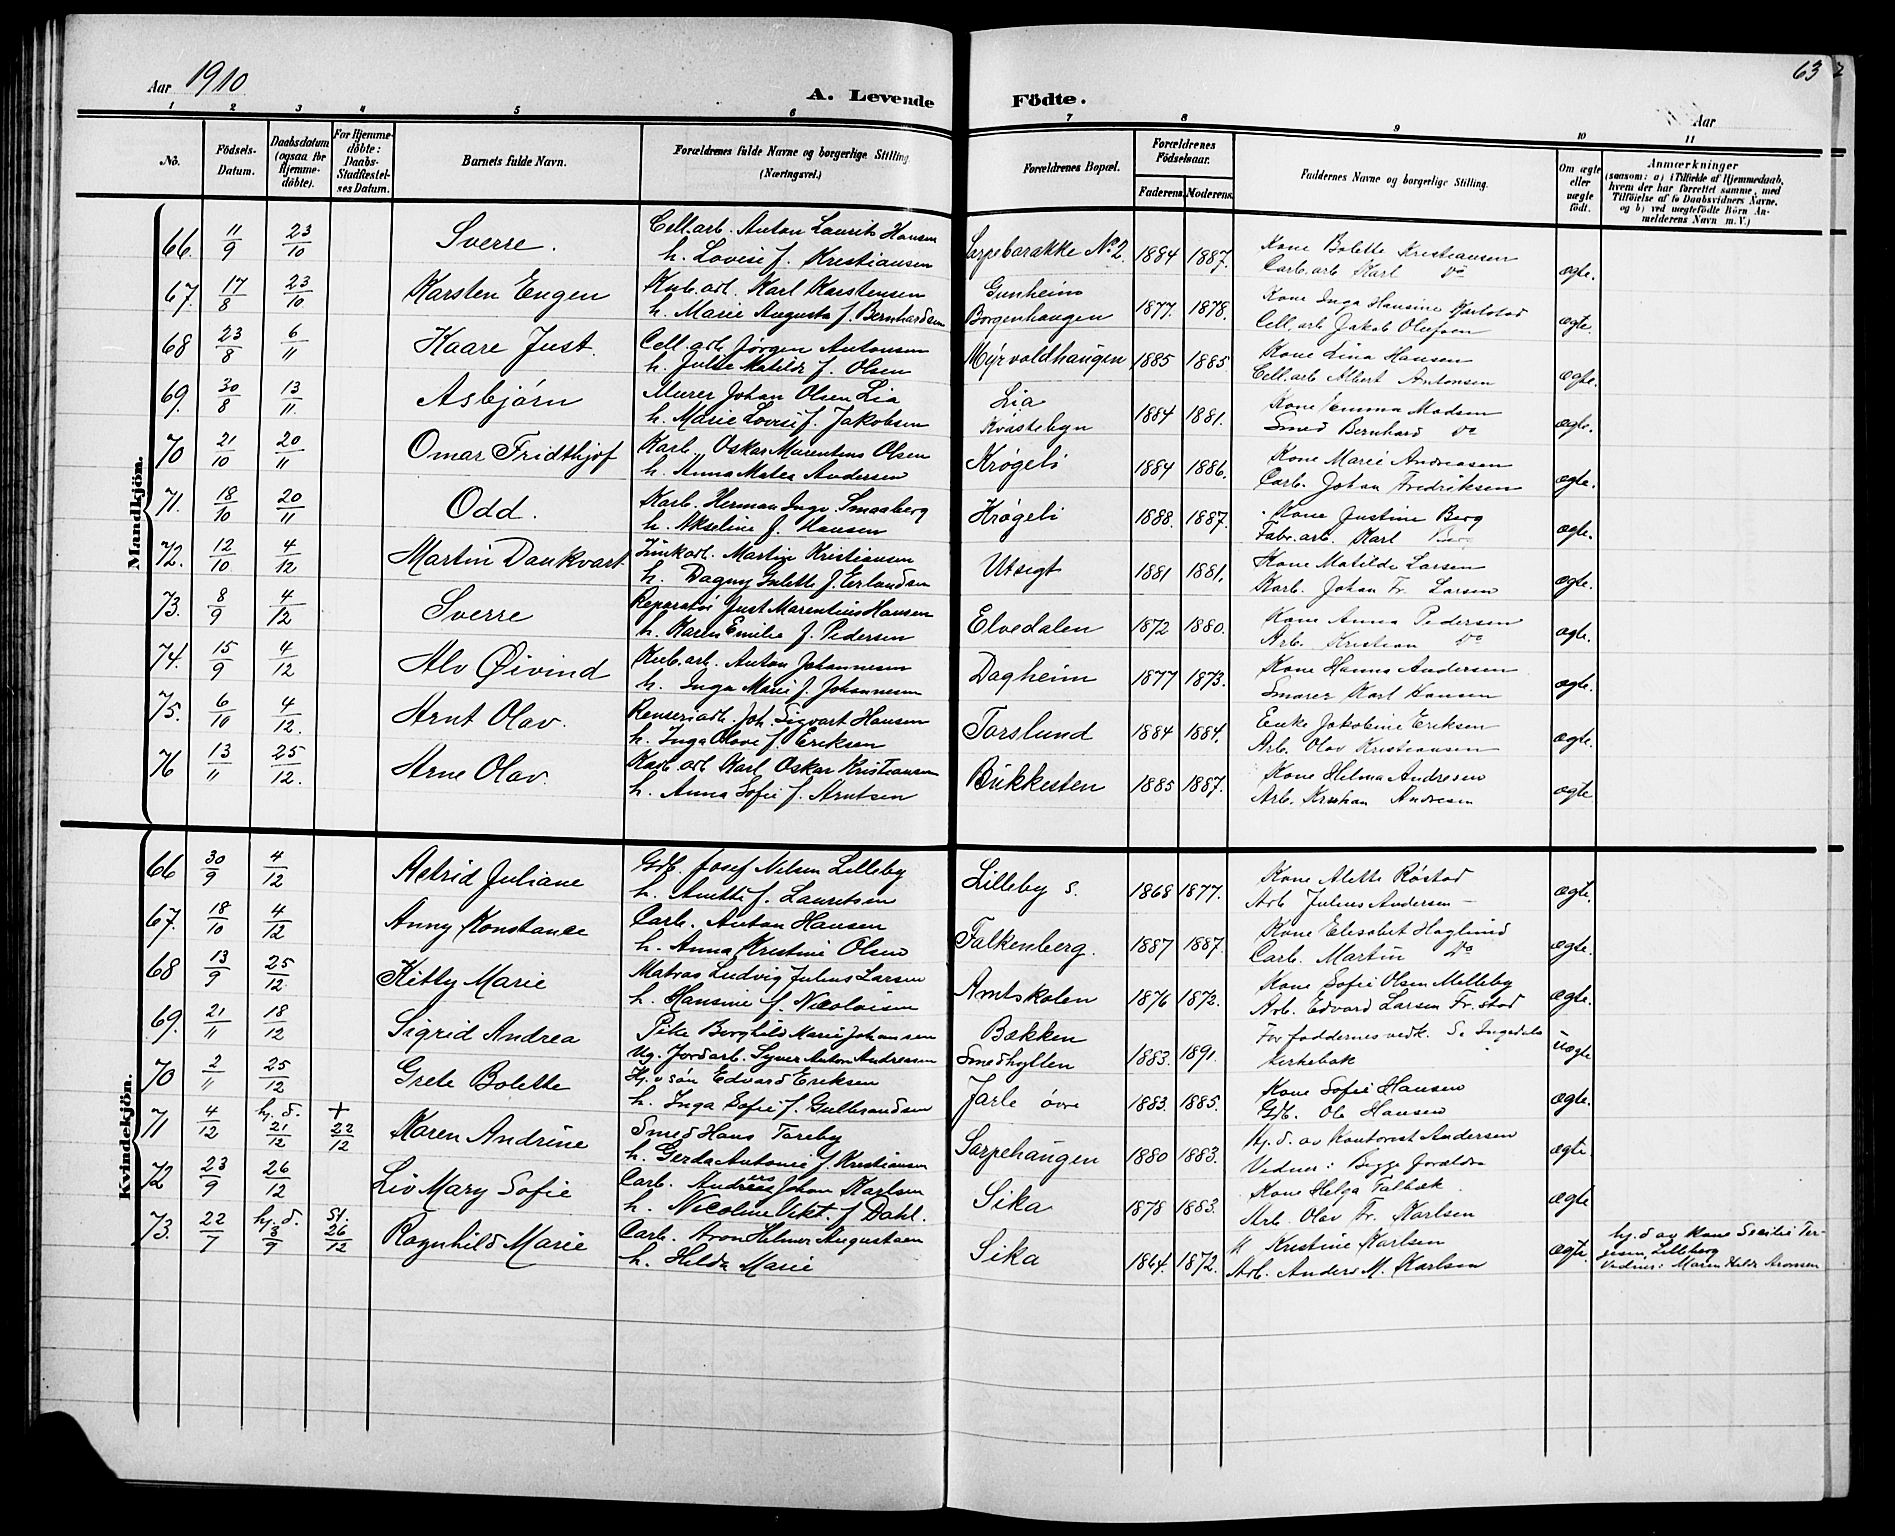 Aar 1910
A. Levende Födte.
63
Aar
1 2 3 4 5 6 7 8 9 10 11
No. Födsels-Datum. Daabsdatum (ogsaa for Hjemme-döbte). For Hjemme-döbte: Daabs-Stadfæstel-ses Datum. Barnets fulde Navn. Forældrenes fulde Navne og borgerlige Stilling. (Næringsvei.) Forældrenes Bopæl. Forældrenes Födselsaar. Faderens. Moderens. Faddernes Navne og borgerlige Stilling. Om ægte eller uægte födt. Anmærkninger (saasom: a) i Tilfælde af Hjemmedaab, hvem der har forrettet samme, med Tilföielse af to Daabsvidners Navne, og b) ved uægtefödte Börn An-melderens Navn m. V.)
Mandkjön.
66. 11/9 23/10 Sverre. Cell.arb. Anton Laurits Hansen Sarpebarakke No 2. 1884 1887. Kone Bolette Kristiansen ægte.
h. Lovise f. Kristiansen Carb.arb Karl Do
67. 17/8 23/10 Karsten Engen Kub.arb. Karl Karstensen Gunheim 1877. 1878. Kone Inga Hansine ægte.
h. Marie Augusta f. Bernhardsen Borgenhaugen Cell.arb Jakob Olufsen
68 23/8 6/11 Kaare Just. Cell.arb Jørgen Antonsen Myrvoldhaugen 1885 1885. Kone Lina Hansen ægte.
h. Julie Matilde f. Olsen Cell.arb Albert Antonsen
69. 30/8 13/11. Asbjørn Murer Johan Olsen Lia Lia 1884 1881. Kone Emma Madsen ægte.
h. Marie Lovise f. Jakobsen Kvastebyn Smed Bernhard Do
70 21/10 20/11 Omar Fridthjof Karb. Oskar Marentius Olsen Krøgeli 1884 1886. Kone Marie Andreasen ægte.
h. Anna Matea Andersen Carb. Johan Fredriksen
71. 18/10 20/11 Odd. Karb. Herman Inge Smaaberg Krøgeli 1888. 1887. Kone Justine Berg ægte.
h. Akseline f. Hansen Fabr.arb. Karl Berg
72. 12/10 4/12 Martin Dankvart Zinkarb. Martin Kristiansen Utsigt 1881 1881. Kone Matilde Larsen ægte.
h. Dagny Gulette f. Erlandsen Karb. Johan Fr. Larsen
73. 8/9 4/12 Sverre Reparatør Just Marentius Hansen Elvedalen 1872 1880. Kone Anna Pedersen ægte.
h. Karen Emilie f. Pedersen Arb. Kristian Do
74. 15/9 4/12 Alv Øivind Kub.arb. Anton Johannesen Dagheim 1877 1873. Kone Hanna Andersen ægte.
h. Inga Marie f. Johannesen Smører Karl Hansen
75. 6/10 4/12. Arnt Olav. Renseriarb. Joh. Sigvart Hansen Torslund 1884 1884. Enke Jakobine Eriksen ægte.
h. Inga Olave f. Eriksen Arb. Olav Kristiansen
76 13/11 25/12. Arne Olav. Karb.arb Karl Oskar Kristiansen Bukkesten 1885 1887. Kone Helma Andresen ægte
h. Anna Sofie f. Arntsen Arb. Kristian Andresen
Kvindekjön.
66 30/9 4/12 Astrid Juliane Gdb. Josef Nilsen Lilleby Lilleby s. 1868 1877. Kone Alette Røstad ægte.
h. Anette f. Lauritsen Arb Julius Andersen
67. 18/10 4/12 Anny Konstance Carb. Anton Hansen Falkenberg. 1887 1887. Kone Elisabet Haglund ægte.
h. Anna Kristine Olsen Carb. Martin Do
68 13/9 25/12. Kitty Marie Matros Ludvig Julius Larsen Amtskolen 1876 1872. Kone Sofie Olsen Melleby ægte.
h. Hansine f. Nicolaisen Arb. Edvard Larsen Fr.stad
69. 21/11 18/12 Sigrid Andrea Pike Borghild Marie Johansen Bækken 1883. 1891. For faddernes vedk. Se Ingedals uægte
Ug. Jordarb. Syver Anton Andresen Smedhytten kirkebok
70 2/11 25/12 Grete Bolette Hj. v søn Edvard Eriksen Jarle øvre 1883. 1885. Kone Sofie Hansen ægte.
h. Inga Sofie f. Gulbrandsen Gdb. Ole Hansen
71 4/12 hj. d. 21/12 + 22/12 Karen Andrine Smed Hans Tareby Sarpehaugen 1880 1883. Hj. d. av Kontorist Andersen ægte
h. Gerda Antonie f. Kristiansen Vidner: Begge forældre
72 23/9 26/12 Liv Mary Sofie Carb. Anders Johan Karlsen Sika 1878 1883. Kone Helga Falbæk ægte
h. Nicoline Vikt. f. Dahl. Arb. Olav Fr. Karlsen
73. 22/7 hj. d. 3/9 St. 26/12 Ragnhild Marie Carb. Aron Helmer Augustsen Sika 1864. 1872. K Kristine Karlsen ægte. hj. d av kone Secilie Ter-
h. Hilda Marie Arb. Anders M. Karlsen gesen, Lilleborg
Vidner: Maren Hilda Aronsen